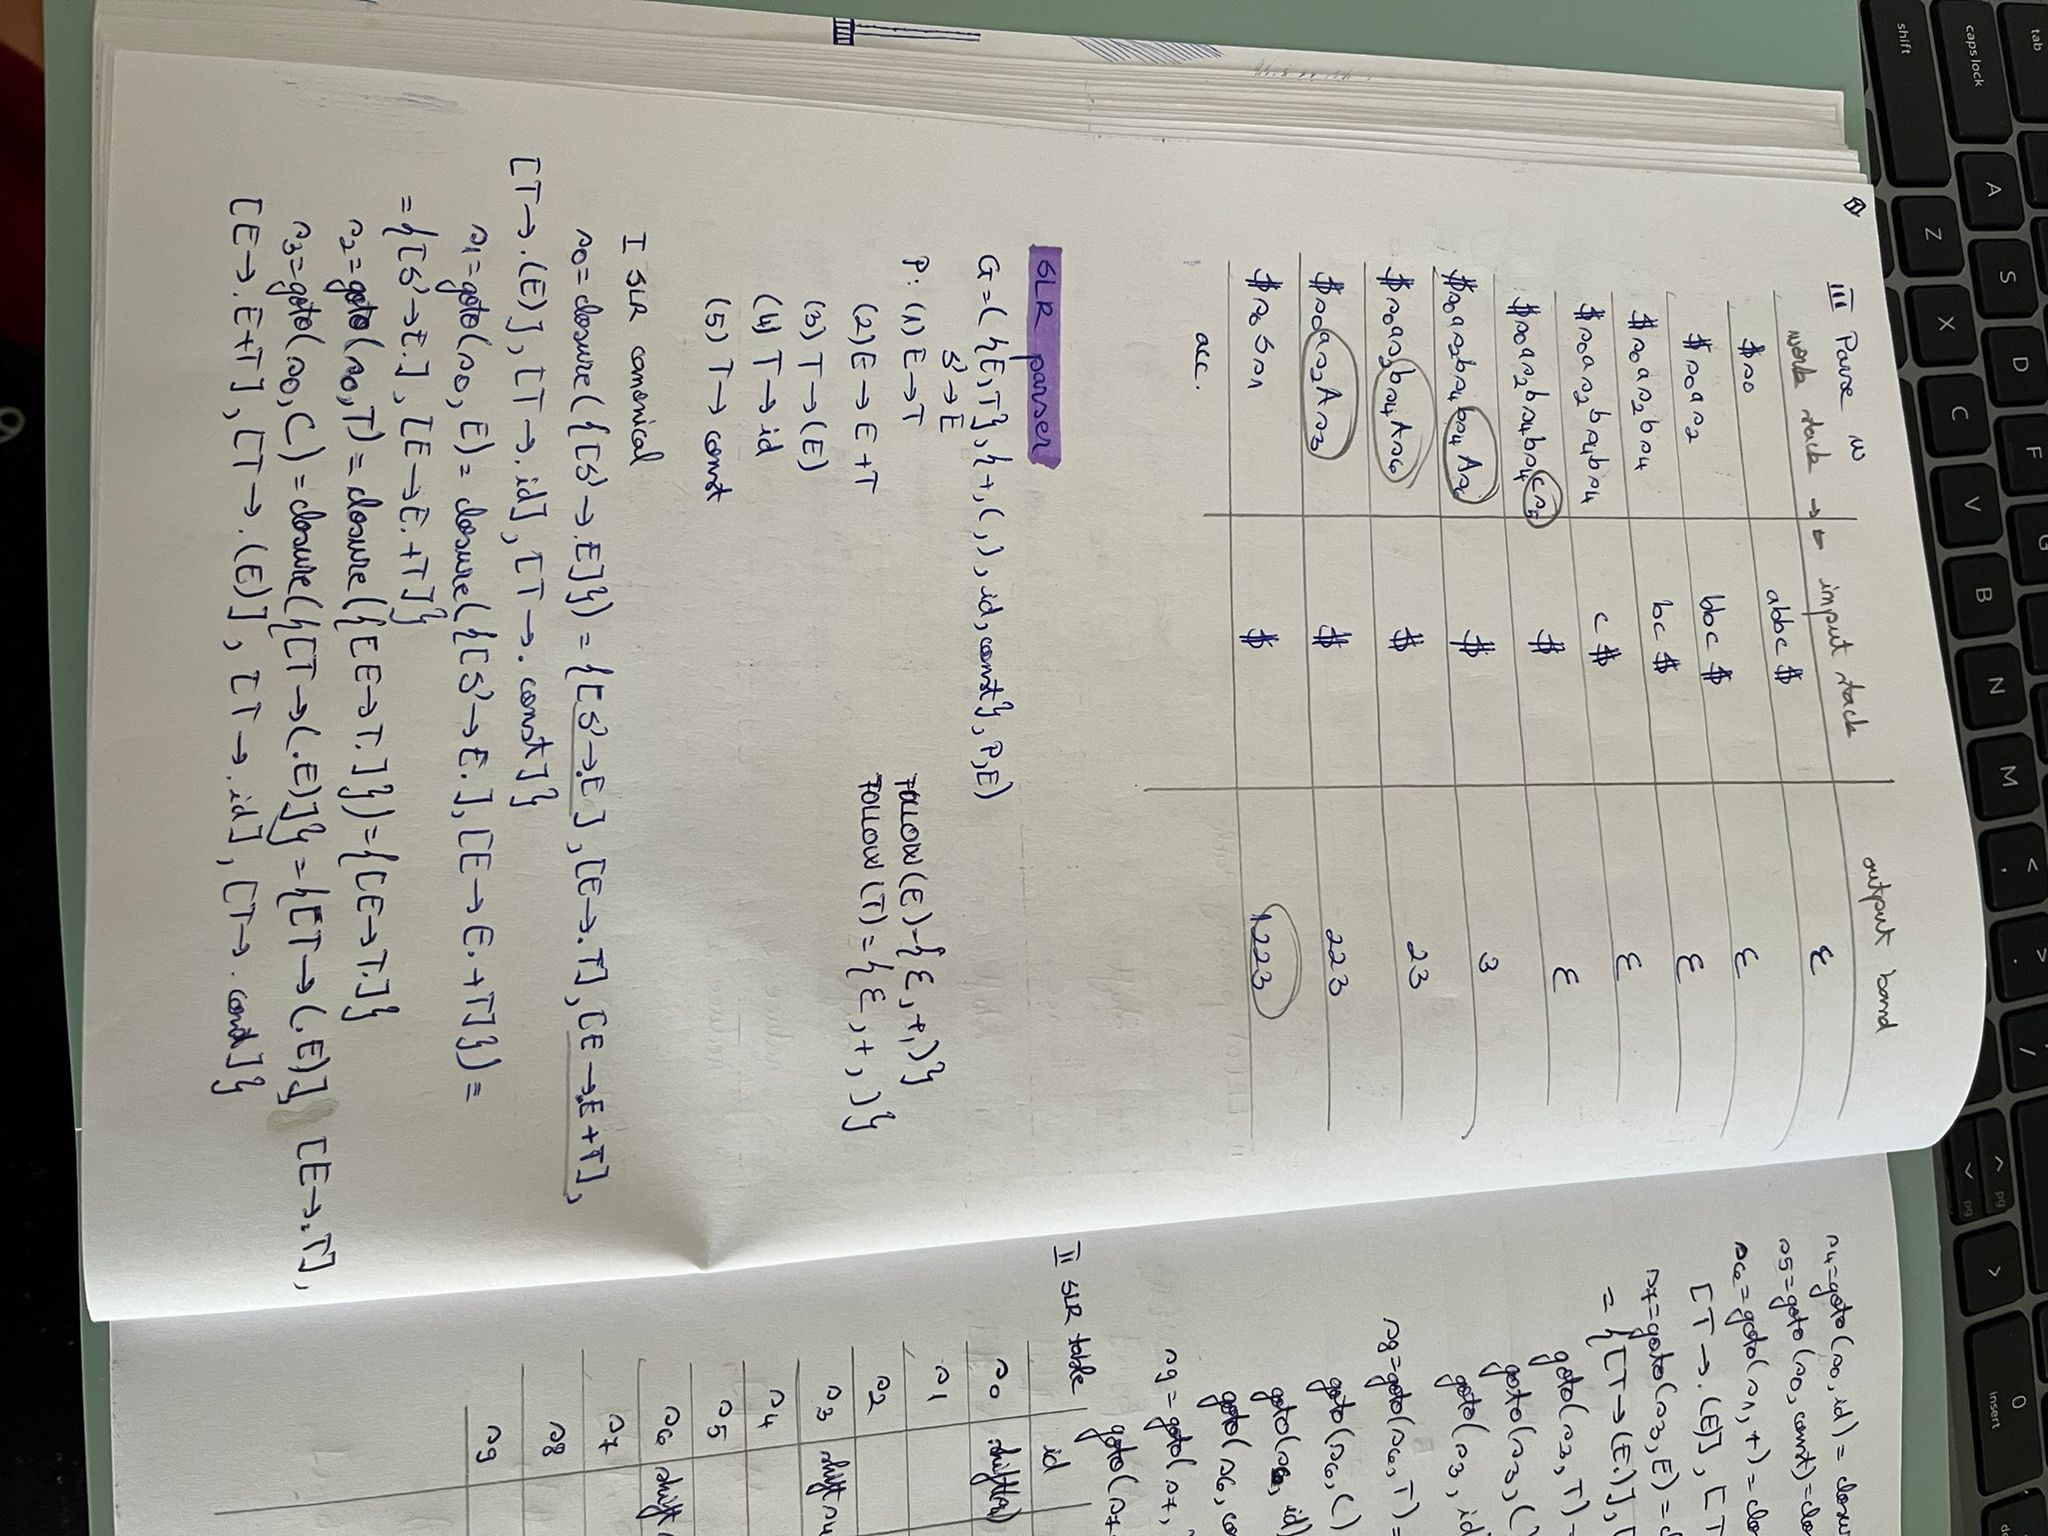 tab
caps lock
shift
A S D F G
Z X C V B N M < , > . / 
^ pg
v pg
>
0
insert
III Parse w
work stack → ← input stack output band
$s0 abbc $ ε
$s0as2 bbc $ ε
$s0as2bs4 bc $ ε
$s0as2bs4bs4 c $ ε
$s0as2bs4bs4cs5 $ ε
$s0as2bs4bs4As6 $ 3
$s0as2bs4As6 $ 23
$s0as2As3 $ 223
$s0Ss1 $ 1223
acc.
SLR parser
G=({E,T},{+,(,),id,const},P,E)
S'→E
P: (1) E→T
(2) E→E+T
(3) T→(E)
(4) T→id
(5) T→const
FOLLOW(E)={ε,+,)}
FOLLOW(T)={ε,+,)}
I SLR canonical
s0=closure({[S'→.E]})={[S'→.E],[E→.T],[E→.E+T],
[T→.(E)],[T→.id],[T→.const]}
s1=goto(s0,E)=closure({[S'→E.],[E→E.+T]})=
={[S'→E.],[E→E.+T]}
s2=goto(s0,T)=closure({[E→T.]})={[E→T.]}
s3=goto(s0,()=closure({[T→(.E)]}={[T→(.E)] [E→.T],
[E→.E+T],[T→.(E)],[T→.id],[T→.const]}
s4=goto(s0,id)=closur
s5=goto(s0,const)=clo
s6=goto(s1,+)=clo
[T→.(E)],[T
s7=goto(s3,E)=c
={[T→(E.)],[
goto(s3,T)=
goto(s3,()
goto(s3,id
s8=goto(s6,T)=
goto(s6,()
goto(s6,id)
goto(s6,co
s9=goto(s7,
goto(s7
II SLR table id
s0 shift(s4)
s1
s2
s3 shift s4
s4
s5
s6 shift
s7
s8
s9